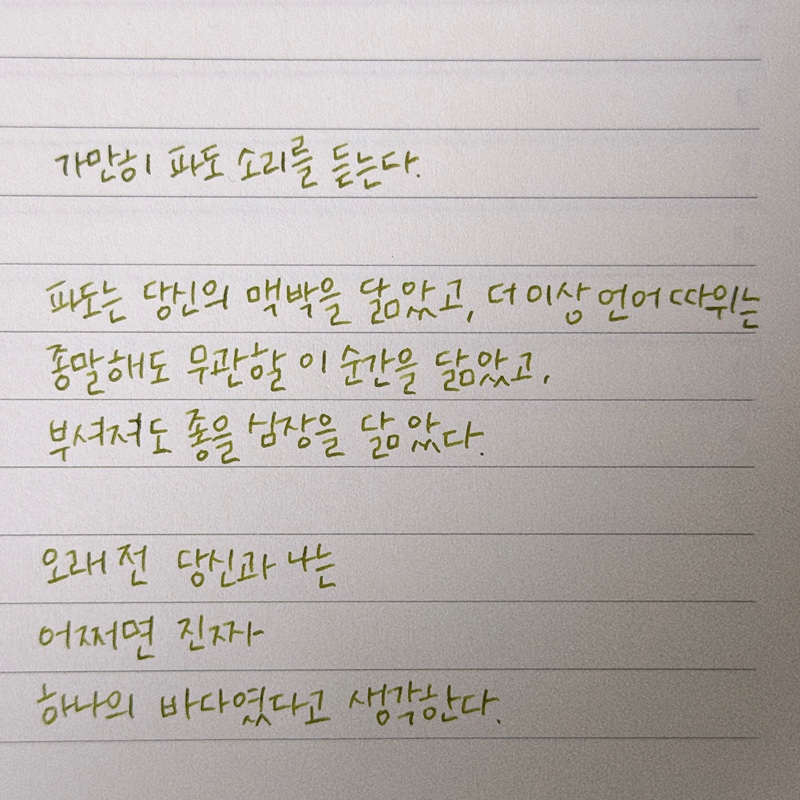 가만히 파도 소리를 듣는다.
파도는 당신의 맥박을 닮았고, 더 이상 언어 따위는
종말해도 무관할 이 순간을 닮았고,
부셔져도 좋을 심장을 닮았다.
오래 전 당신과 나는
어쩌면 진짜
하나의 바다였다고 생각한다.